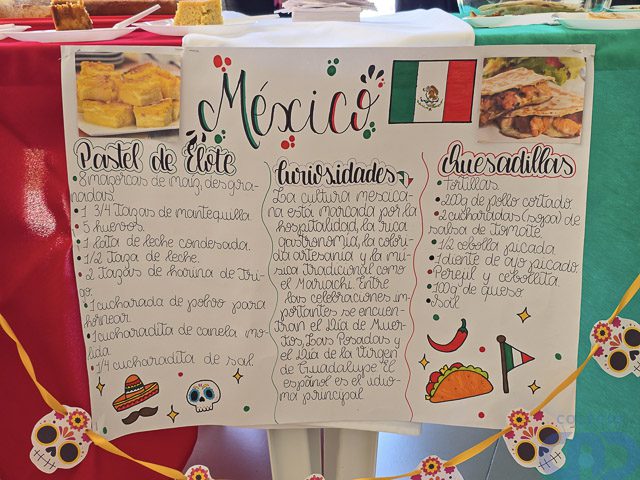 México
Pastel de Elote
• 8 mazorcas de maíz, des gra-
nadas
• 1 3/4 Tazas de mantequilla
• 5 huevos.
• 1 lata de leche condesada.
• 1/2 Taza de leche.
• 2 Tazas de harina de Tri-
go.
• 1 cucharada de polvo para
hornear
• 1 cucharadita de canela mo-
lida
• 1/4 cucharadita de sal
Curiosidades
La cultura mexica-
na esta marcada por la
hospitalidad, la rica
gastronomía, la colori-
da artesania y la mú-
sica Tradicional como
el Mariachi. Entre
las celebraciones im-
portantes se encuen-
tran el Día de Muer-
tos, Las Posadas y
el Día de la Virgen
de Guadalupe. El
español es el idio-
ma principal
Quesadillas
• Tortillas.
• 200g de pollo cortado
• 2 cucharadas (sopa) de
salsa de Tomate.
• 1/2 cebolla picada
• 1 diente de ajo picado.
• Perejil y cebollita
• 100g de queso
• Sal